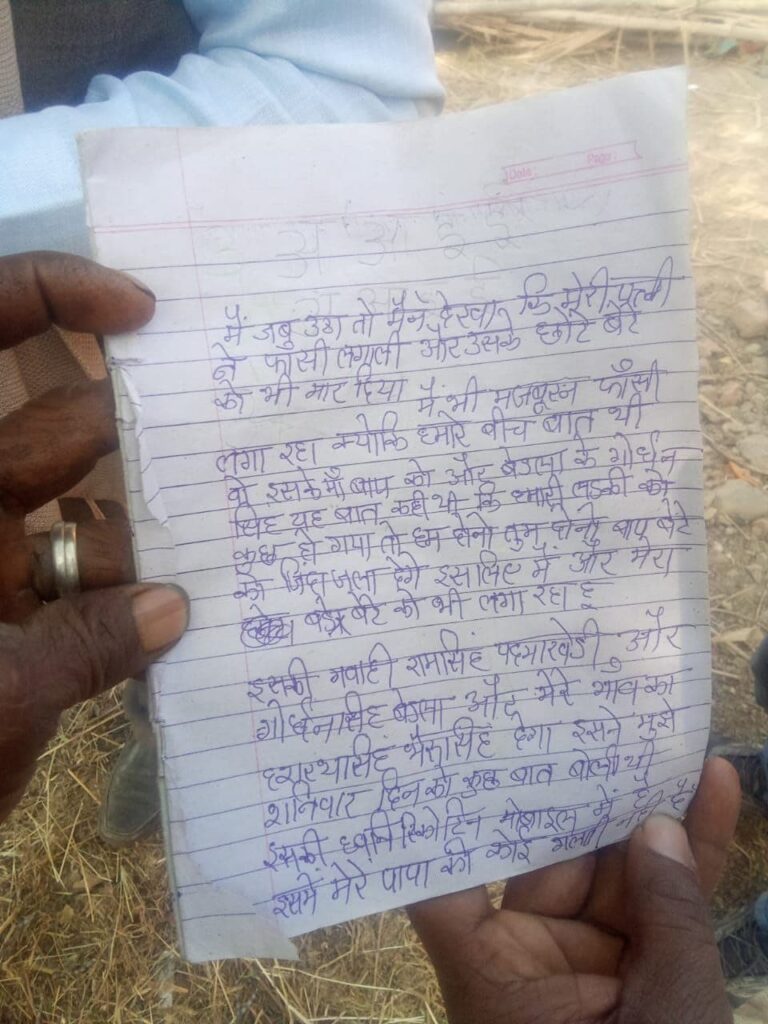 Date Page
अ आ इ ई
मैं जब उठा तो मैंने देखा कि मेरी पत्नी
ने फासी लगाली और उसके छोटे बेटे
को भी मार दिया मैं भी मजबूरन फाँसी
लगा रहा क्योकि हमारे बीच बात थी
इसके माँ बाप को और बेडला के गोर्धन
सिंह यह बात कही थी कि हमारी लडकी को
कुछ हो गया तो हम दोनो तुम दोनो बाप बेटे
को जिंदा जला देंगे इसलिए मैं और मेरा
बडे बेटे को भी लगा रहा हू
इसकी गवाही रामसिंह पदमाखेडी और
गोर्धनसिंह बेडला और मेरे गाव का
भैरूसिंह देगा इसने मुझे
शनिवार दिन को कुछ बात बोली थी
इसकी ध्वनि रिकोर्डिन मोबाइल में है
इसमें मेरे पापा की कोई गलती नही है